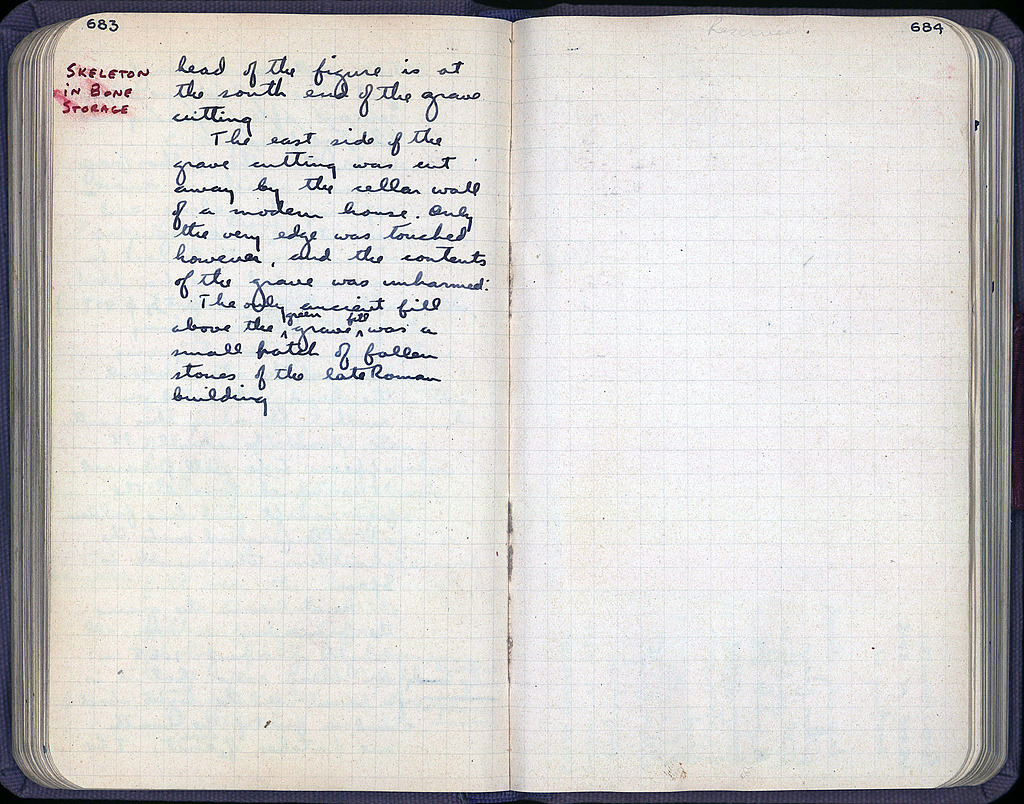 683
SKELETON
IN BONE
STORAGE
head of the figure is at
the south end of the grave
cutting
The east side of the
grave cutting was cut
away by the cellar wall
of a modern house. Only
the very edge was touched
however, and the contents
of the grave was unharmed.
The only ancient fill
above the green grave fill was a
small patch of fallen
stones of the late Roman
building
684